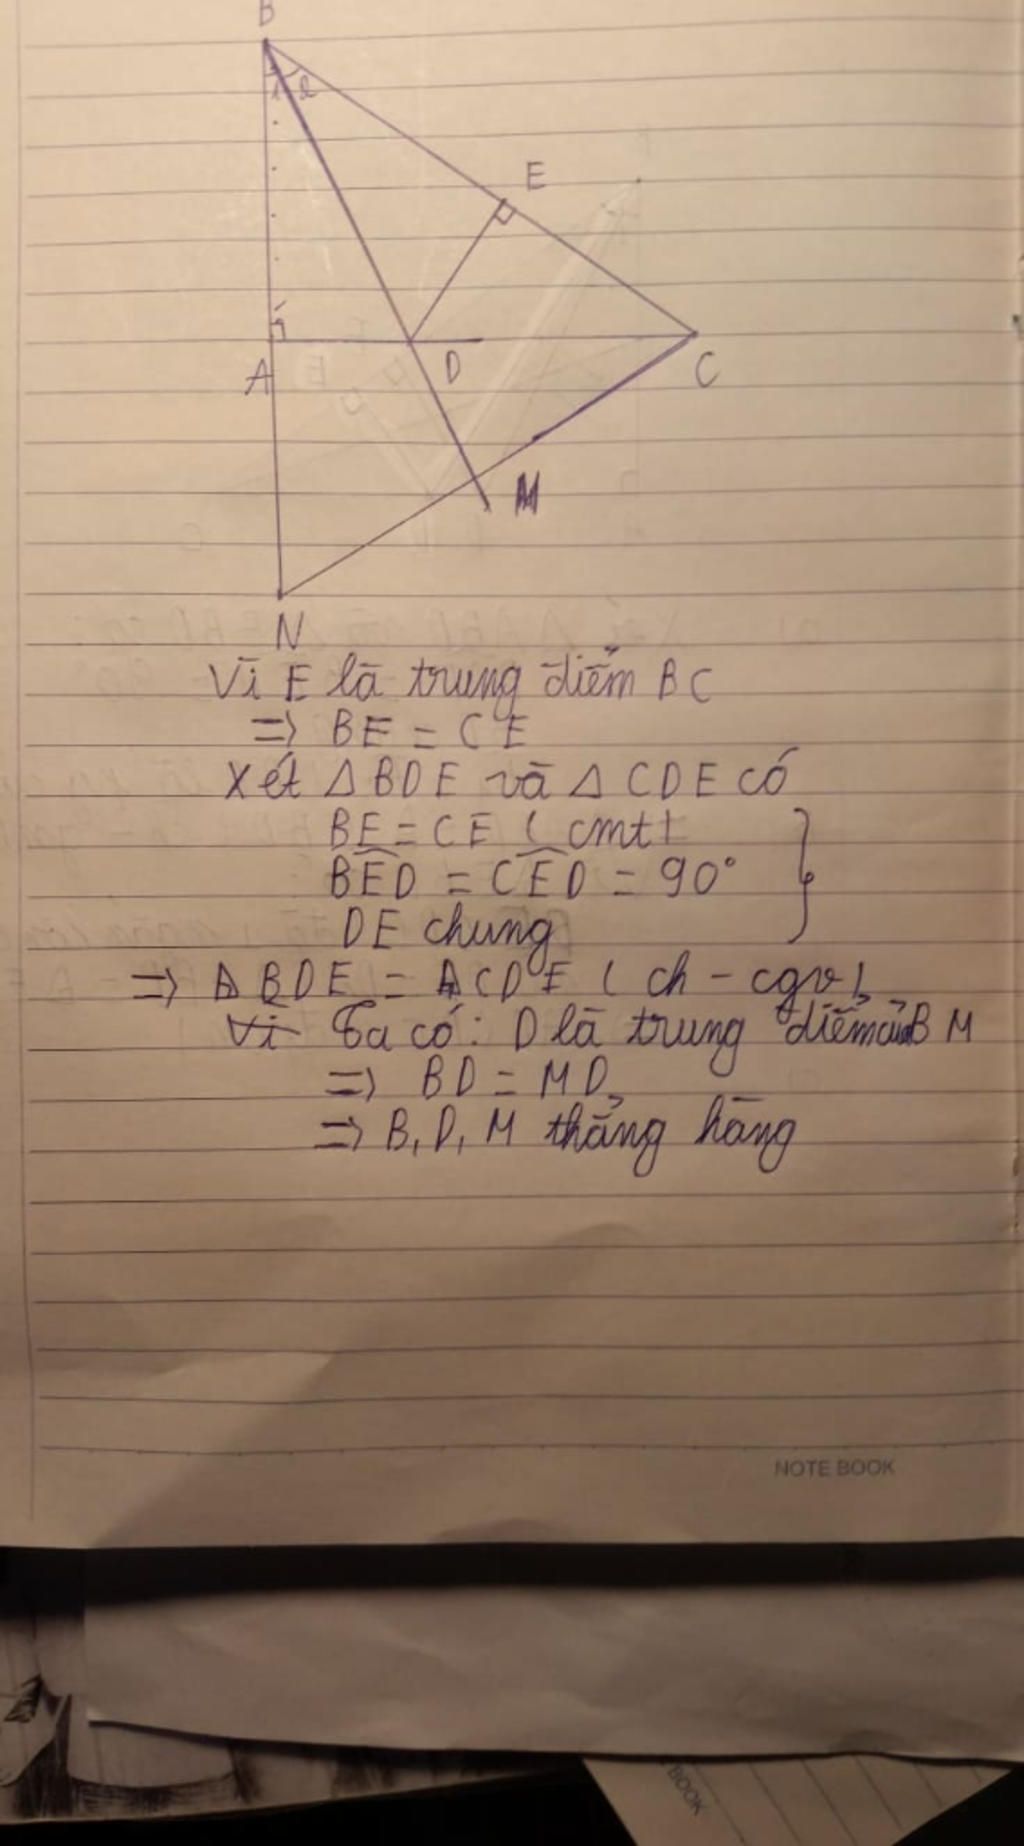 B
1 2
E
A
D
C
M
N
Vì E là trung điểm BC
=> BE = CE
Xét Δ BDE và Δ CDE có
BE = CE ( cmt )
BED = CED = 90°
DE chung
=> Δ BDE = Δ CDE ( ch - cgv )
Vì Ta có: D là trung điểm của BM
=> BD = MD
=> B, D, M thẳng hàng
NOTE BOOK
BOOK